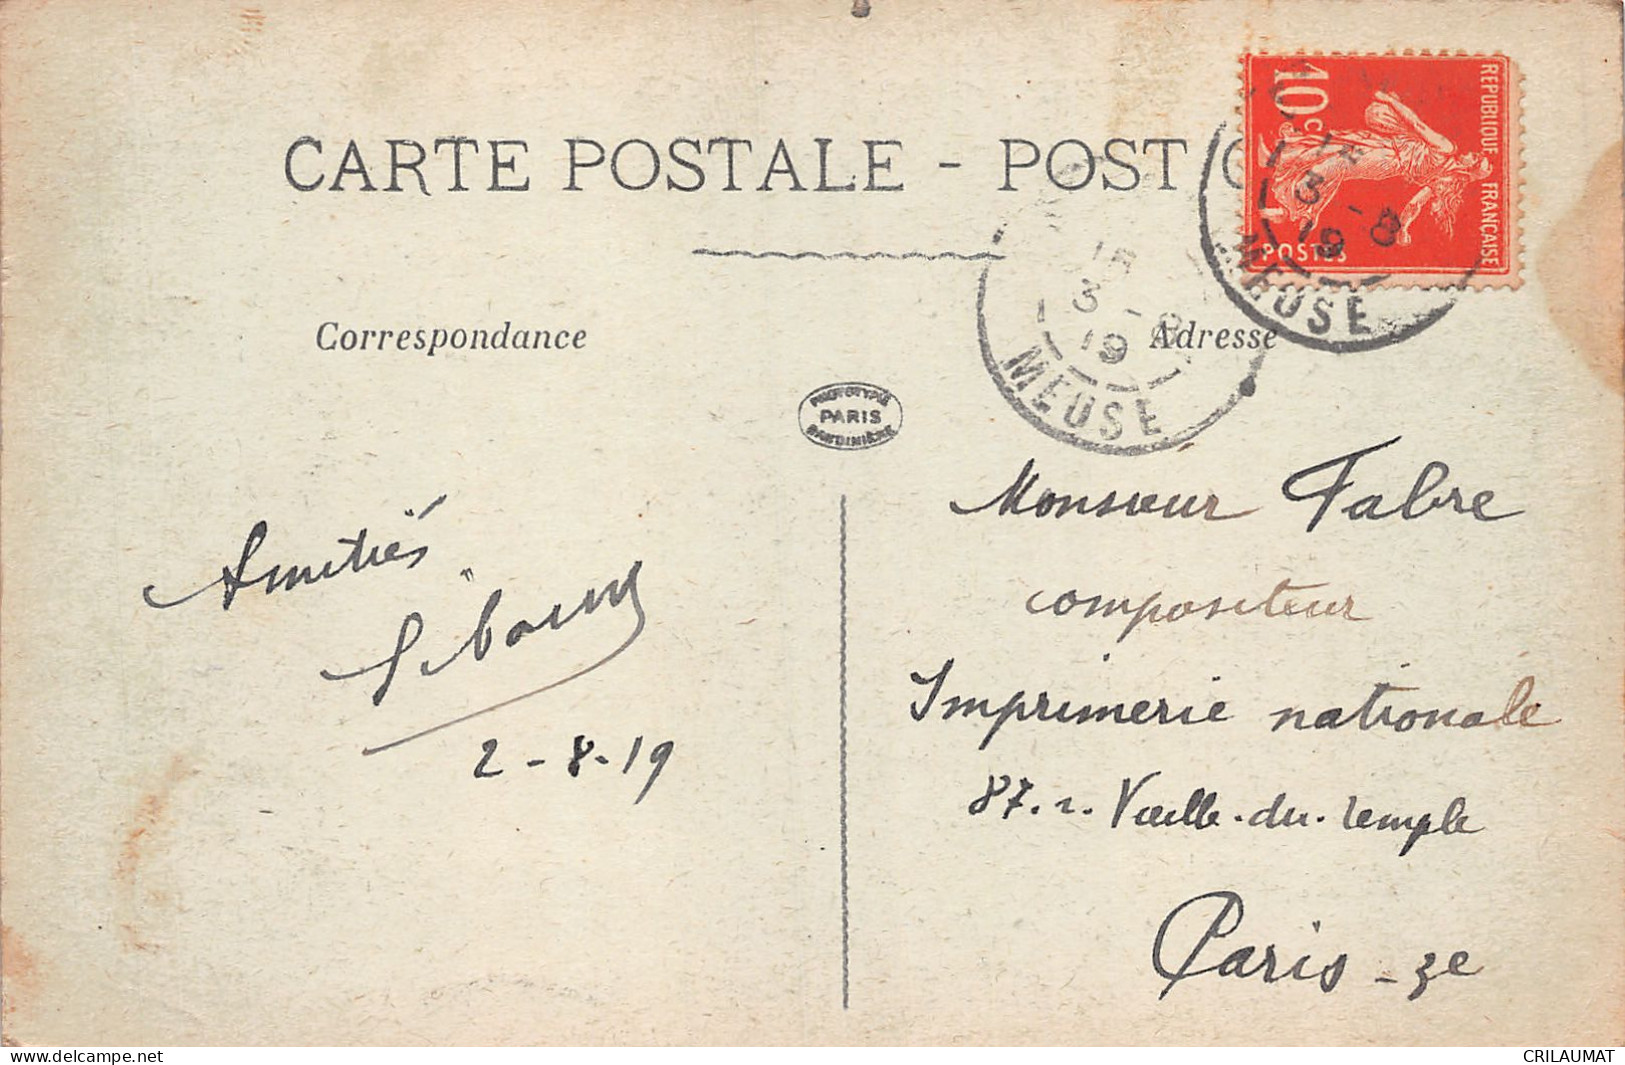 CARTE POSTALE - POST C
REPUBLIQUE FRANÇAISE
10c
POSTES
15
3 - 8
19
MEUSE
15
3 - 8
19
MEUSE
Correspondance
Adresse
PHOTOTYPIE
PARIS
BAUDINIÈRE
Amitiés
2-8-19
Monsieur Fabre
compositeur
Imprimerie nationale
87. r. Vieille-du-temple
Paris - 3e
www.delcampe.net
CRILAUMAT